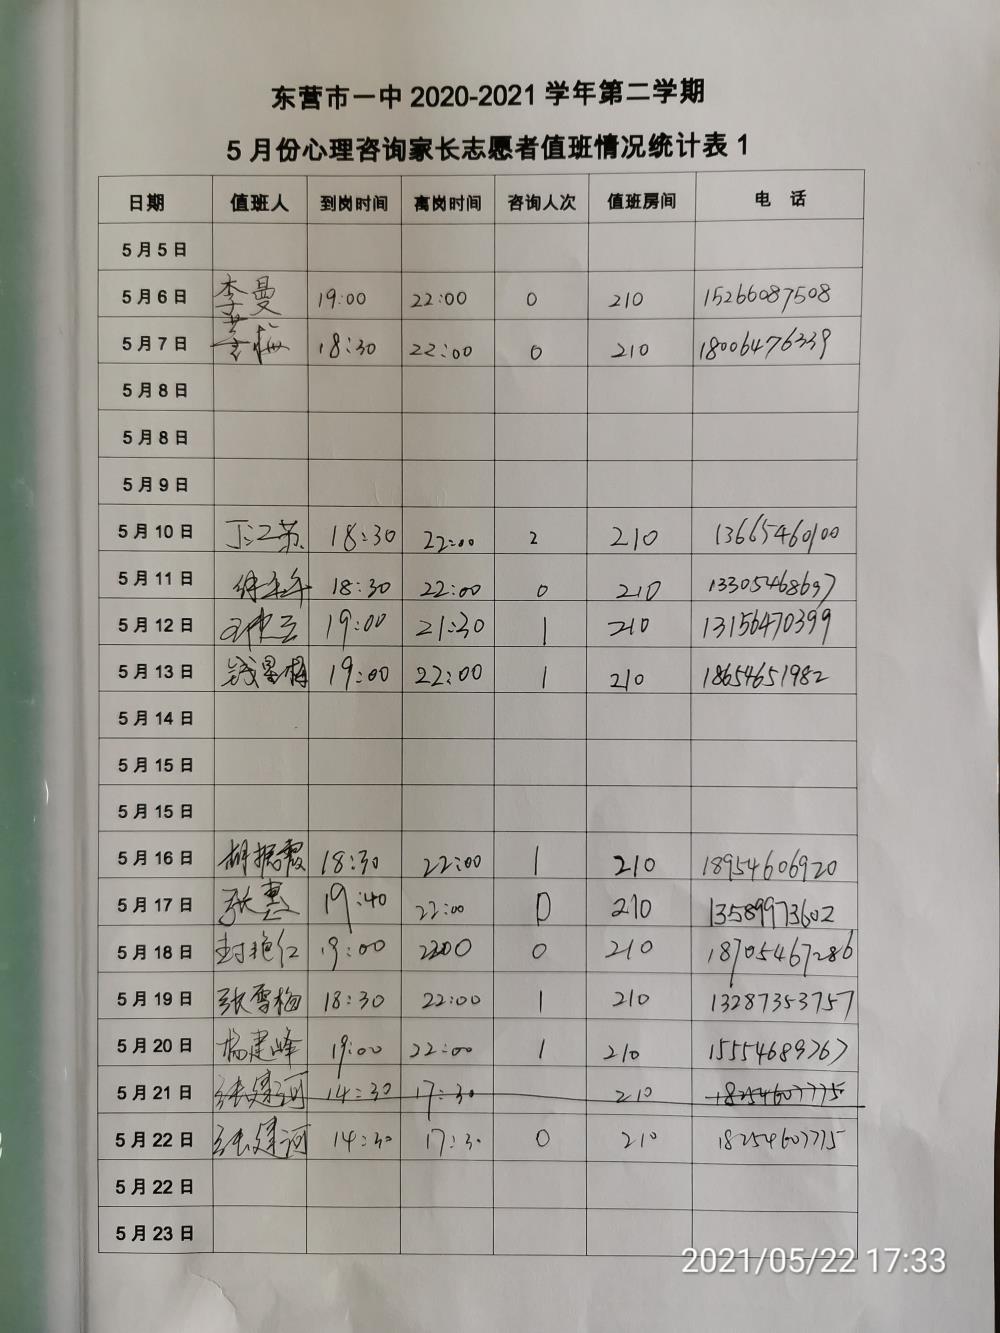 东营市一中 2020-2021 学年第二学期
5 月份心理咨询家长志愿者值班情况统计表 1
日期 值班人 到岗时间 离岗时间 咨询人次 值班房间 电 话
5 月 5 日
5 月 6 日 李曼 19:00 22:00 0 210 15266087508
5 月 7 日 18:30 22:00 0 210 18006476339
5 月 8 日
5 月 8 日
5 月 9 日
5 月 10 日 丁江苏 18:30 22:00 2 210 13665460100
5 月 11 日 18:30 22:00 0 210 13305468697
5 月 12 日 19:00 21:30 1 210 13156470399
5 月 13 日 19:00 22:00 1 210 18654651982
5 月 14 日
5 月 15 日
5 月 15 日
5 月 16 日 胡振霞 18:30 22:00 1 210 18954606920
5 月 17 日 张惠 19:40 22:00 0 210 13589973602
5 月 18 日 封艳红 19:00 2200 0 210 18705467286
5 月 19 日 张雪梅 18:30 22:00 1 210 13287353757
5 月 20 日 杨建峰 19:00 22:00 1 210 15554689767
5 月 21 日 张建河 14:30 17:30 210 18254607775
5 月 22 日 张建河 14:30 17:30 0 210 18254607775
5 月 22 日
5 月 23 日
2021/05/22 17:33